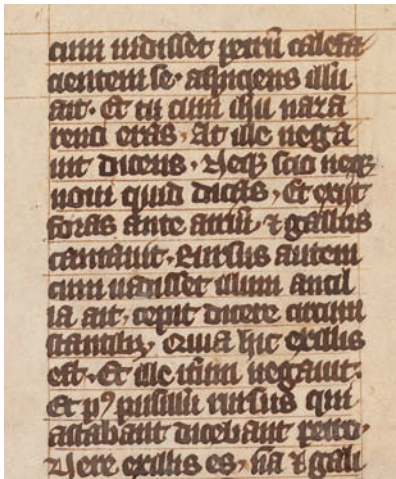 cum uidisset petrū calefa
cientem se. aspiciens illū
ait. Et tu cum ihu naza
reno eras. At ille nega
uit dicens. Neq; scio neq;
noui quid dicas. Et exijt
foras ante atriū. ⁊ gallus
cantauit. Rursus autem
cum uidisset illum ancil
la ait. cepit dicere circum
stantibꝫ. Quia hic exillis
est. Et ille itm̄ negauit.
Et pꝰ pusillū rursus qui
astabant dicebant petro.
Uere exillis es. nā ⁊ galil